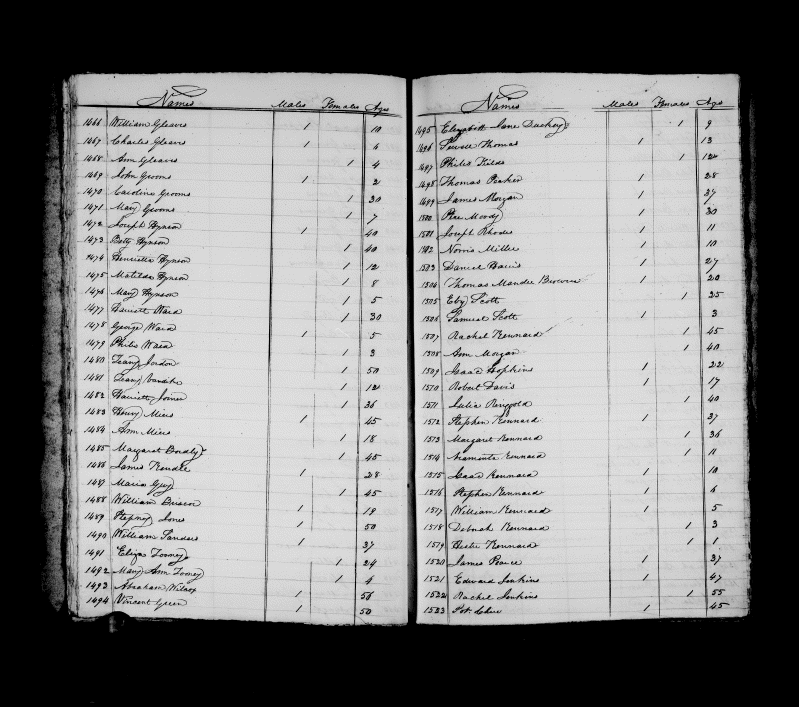 Names Males Females Ages
1466 William Gleaves 1 10
1467 Charles Gleaves 1 6
1468 Ann Gleaves 1 4
1469 John Grooms 1 2
1470 Caroline Grooms 1 30
1471 Mary Grooms 1 7
1472 Joseph Hynson 1 40
1473 Betty Hynson 1 40
1474 Henrietta Hynson 1 12
1475 Matilda Hynson 1 8
1476 Mary Hynson 1 5
1477 Harriett Ward 1 30
1478 George Ward 1 5
1479 Philis Ward 1 3
1480 Jordon 1 50
1481 1 12
1482 Harriett Joiner 1 36
1483 Henry Miers 1 45
1484 Ann Miers 1 18
1485 Margaret Bordly 1 45
1486 James 1 28
1487 Maria Guy 1 45
1488 William Briscoe 1 19
1489 Stepney Jones 1 50
1490 William Sanders 1 37
1491 Eliza Toomey 1 24
1492 Mary Ann Toomey 1 4
1493 Abraham Wilcox 1 56
1494 Vincent Green 1 50
Names Males Females Ages
1495 Elizabeth Jane 1 9
1496 Thomas 1 13
1497 Philis 1 12
1498 Thomas Peaker 1 28
1499 James Morgan 1 37
1500 Moody 1 30
1501 Joseph Rhodes 1 11
1502 Norris Miller 1 10
1503 Daniel Harris 1 27
1504 Thomas Browne 1 20
1505 Eby Scott 1 35
1506 Samuel Scott 1 3
1507 Rachel Kennard 1 45
1508 Ann Morgan 1 40
1509 Isaac Hopkins 1 22
1510 Robert Davis 1 17
1511 Julia Ringgold 1 40
1512 Stephen Kennard 1 37
1513 Margaret Kennard 1 36
1514 Araminta Kennard 1 11
1515 Isaac Kennard 1 10
1516 Stephen Kennard 1 6
1517 William Kennard 1 5
1518 Deborah Kennard 1 3
1519 Hester Kennard 1 1
1520 James Pearce 1 37
1521 Edward Jenkins 1 47
1522 Rachel Jenkins 1 55
1523 1 45